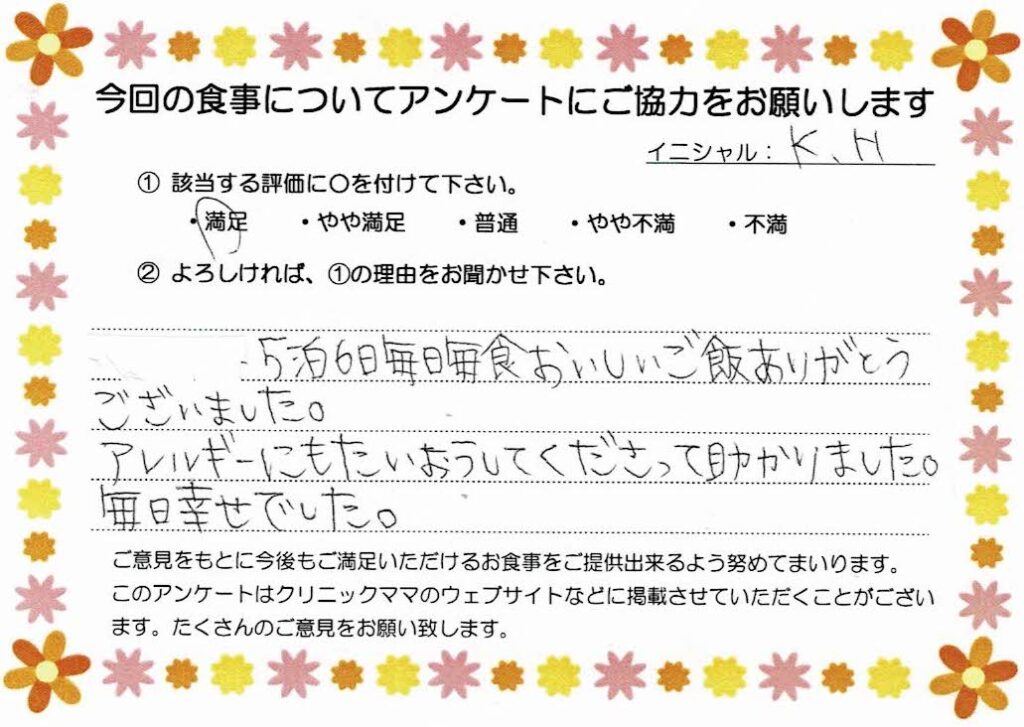 今回の食事についてアンケートにご協力をお願いします
イニシャル： K、H
① 該当する評価に〇を付けて下さい。
・満足 ・やや満足 ・普通 ・やや不満 ・不満
② よろしければ、①の理由をお聞かせ下さい。
5泊6日毎日毎食おいしいご飯ありがとう
ございました。
アレルギーにもたいおうしてくださって助かりました。
毎日幸せでした。
ご意見をもとに今後もご満足いただけるお食事をご提供出来るよう努めてまいります。
このアンケートはクリニックママのウェブサイトなどに掲載させていただくことがござい
ます。たくさんのご意見をお願い致します。